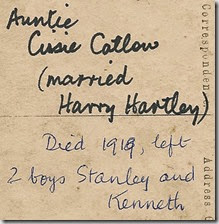 Auntie
Cissie Catlow
(married
Harry Hartley)
Died 1919, left
2 boys Stanley and
Kenneth
Corresponden
Address